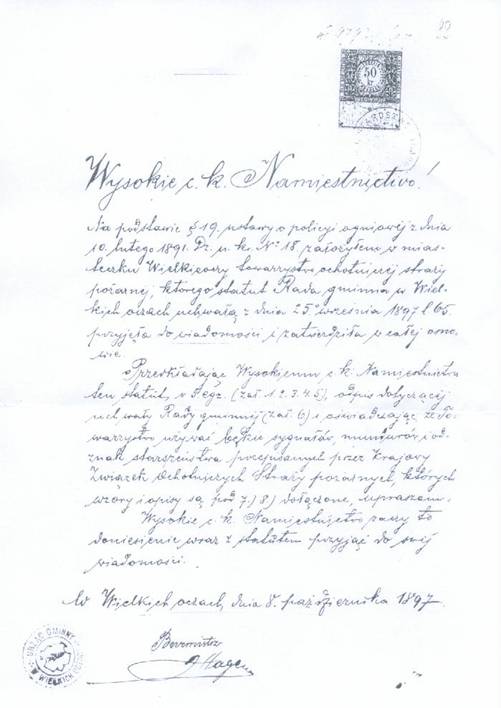 50
Wysokie c. k. Namiestnictwo!
Na podstawie § 19. ustawy o policyi ogniowej z dnia
10. lutego 1891. Dz. u. k. Nº 18 założyłem w mias-
teczku Wielkieoczy towarzystwo ochotniczej straży
pożarnej, którego statut Rada gminna w Wiel-
kich oczach uchwałą z dnia 25. września 1897 l 65.
przyjęła do wiadomości i zatwierdziła w całej osno-
wie.
Przedkładając Wysokiemu c. k. Namiestnictwu
ten statut, w 5 egz. (zał 1. 2. 3. 4. 5), odpis dotyczącej
uchwały Rady gminnej (zał. 6) i oświadczając że To-
warzystwo używać będzie sygnałów, mundurów i od-
znak starszeństwa przepisanych przez Krajowy
Związek Ochotniczych Straży pożarnych, których
wzory i opisy są pod 7.) 8.) dołączone, upraszam:
Wysokie c. k. Namiestnictwo raczy to
doniesienie wraz z statutem przyjąć do swej
wiadomości.
W Wielkich oczach, dnia 8. października 1897.
Burmistrz
URZĄD GMINNY
W WIELKICH OCZACH